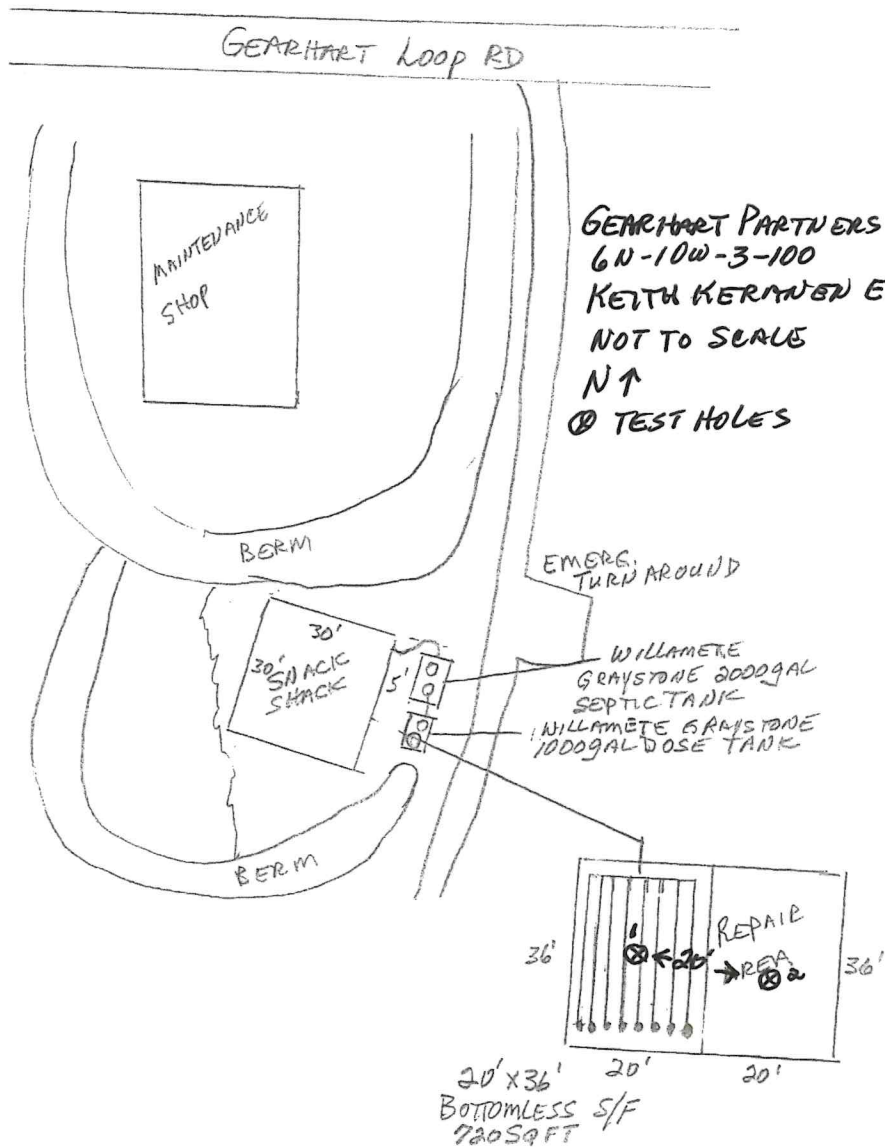 GEARHART LOOP RD
MAINTENANCE
SHOP
GEARHART PARTNERS
6N-10W-3-100
KEITH KERANEN E
NOT TO SCALE
N ↑
⊗ TEST HOLES
BERM
EMERG.
TURN AROUND
30'
30'
SNACK
SHACK
5'
WILLAMETE
GRAYSTONE 2000gAL
SEPTIC TANK
WILLAMETE GRAYSTONE
1000gAL DOSE TANK
BERM
REPAIR
AREA
36'
1
20'
2
36'
20'
20'
20' X 36'
BOTTOMLESS S/F
720 SQ FT